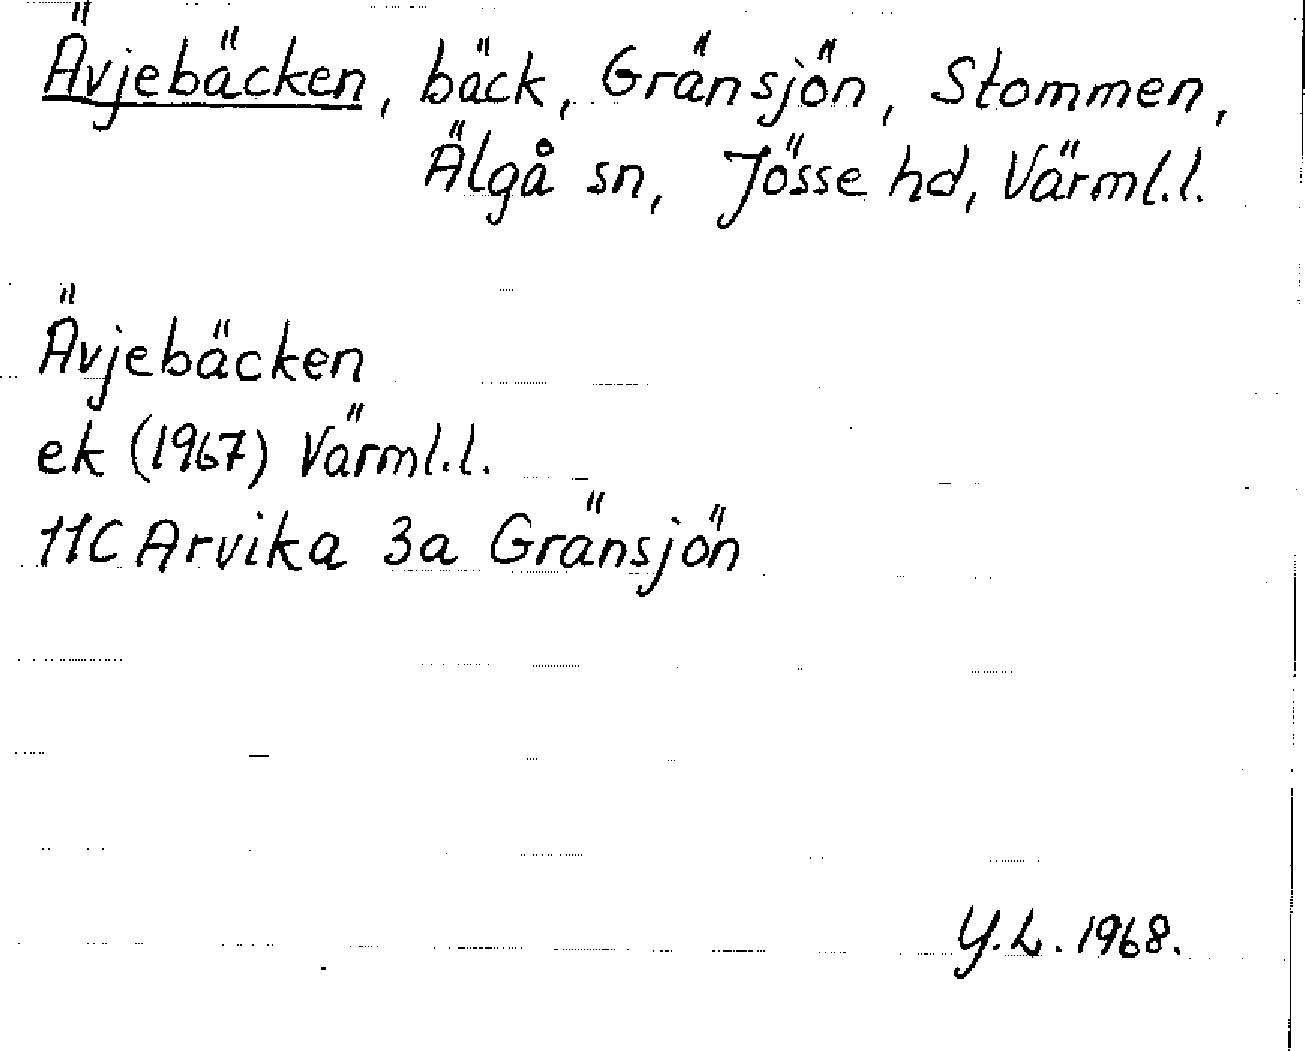 Ävjebäcken, bäck, Gränsjön, Stommen,
Älgå sn, Jösse hd, Värml.l.
Ävjebäcken
ek (1967) Värml.l.
11C Arvika 3a Gränsjön
Y.L. 1968.